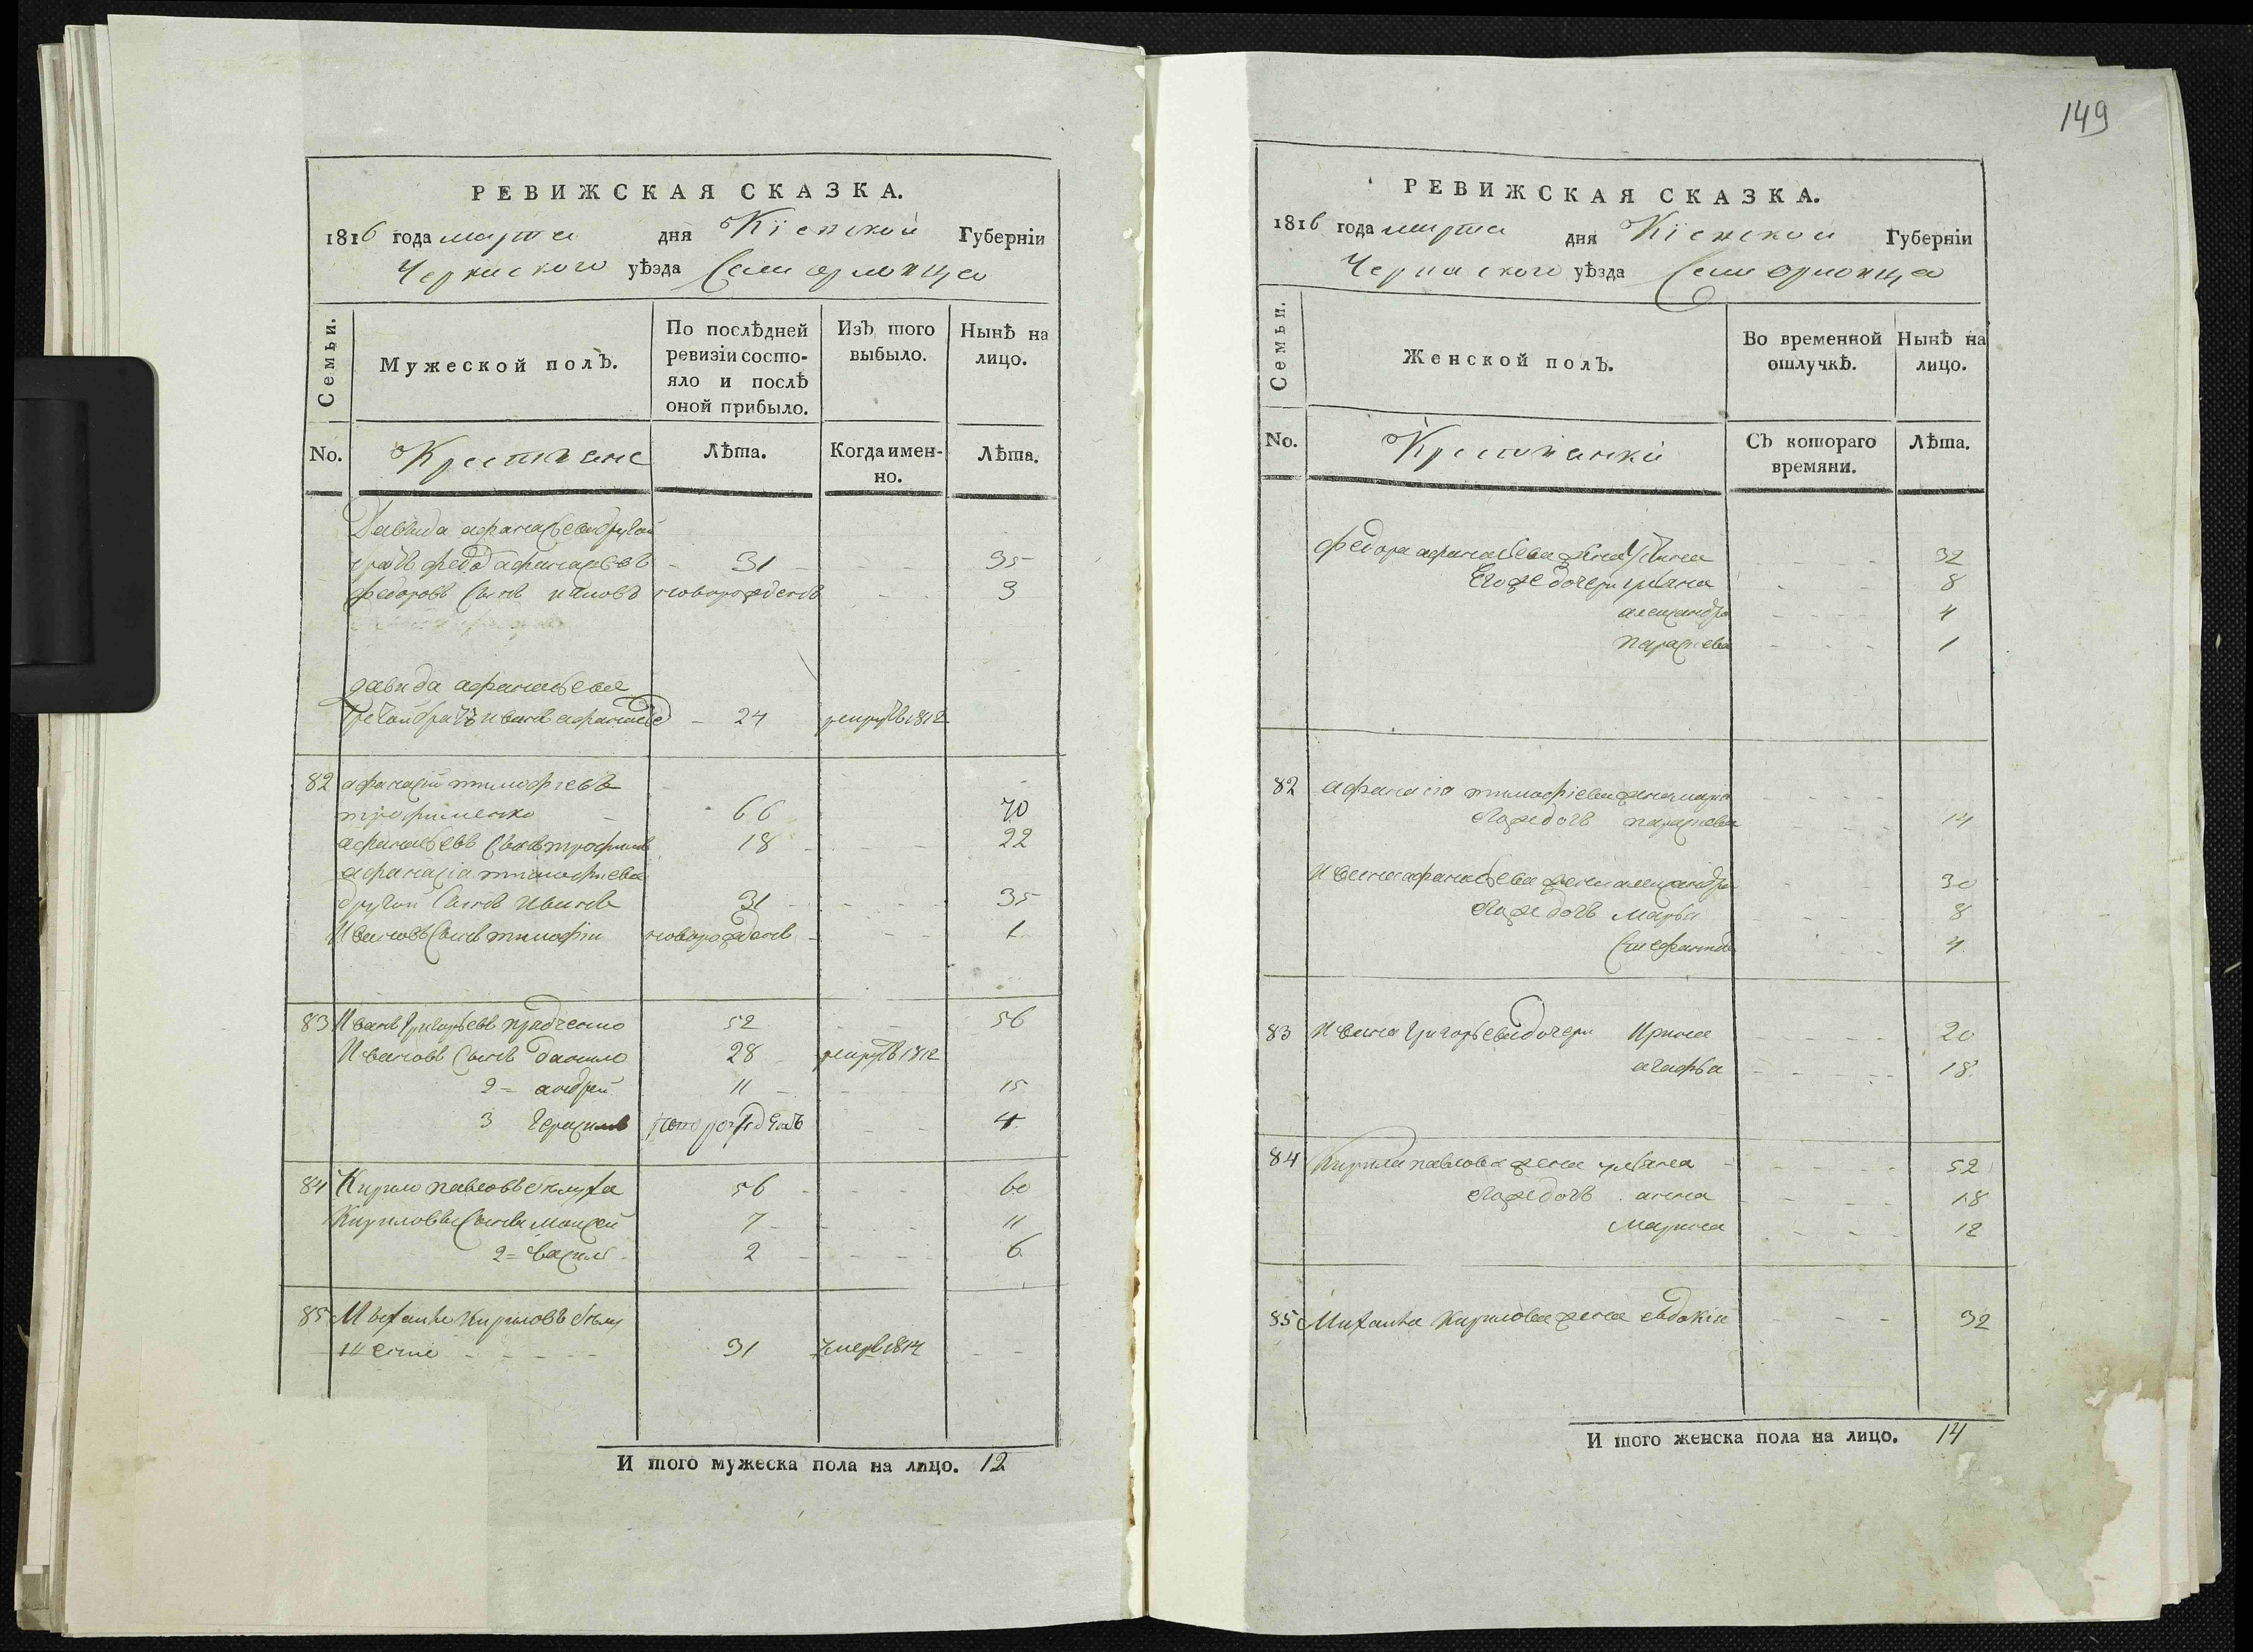 РЕВИЖСКАЯ СКАЗКА.
1816 года марта дня Кіевской Губерніи
Черкаского уѣзда Села орловца
Семьи.
Мужеской полъ.
По послѣдней ревизіи состояло и послѣ оной прибыло.
Изъ того выбыло.
Нынѣ на лицо.
No.
Крестьяне
Лѣта.
Когда именно.
Лѣта.
Давида афанасьева другой
братъ федор афанасьевъ 31 35
федоровъ сынъ новорожденъ 3
давида афанасьева
третій братъ иванъ афанасьев 24 рекрутъ 1812
82 афанасій тимофіевъ
трофименко 66 70
афанасьевъ сынъ трофимъ 18 22
афанасія тимофиева
другой сынъ иванъ 31 35
Ивановъ сынъ тимофій новорожденъ 1
83 Иванъ григорьевъ 52 56
Ивановъ сынъ данило 28 рекрутъ 1812
2 андрей 11 15
3 герасимъ новорожденъ 4
84 Кирило павловъ 56 60
Кириловъ сынъ Моисей 7 11
2 Василь 2 6
85 Михайло Кириловъ
31 умеръ 1814
И того мужеска пола на лицо. 12
149
РЕВИЖСКАЯ СКАЗКА.
1816 года марта дня Кіевской Губерніи
Черкаского уѣзда Села орловца
Семьи.
Женской полъ.
Во временной отлучкѣ.
Нынѣ на лицо.
No.
Крестьянки
Съ котораго времяни.
Лѣта.
федора афанасьева жена Устина 32
Его же дочери ульяна 8
александра 4
параскева 1
82 афанасія тимофіева жена марія
его же дочь параскева 14
Ивана афанасьева жена александра 30
его же дочь марья 8
Стефанида 4
83 Ивана григорьева дочери Ирина 20
агафья 18
84 Кирила павлова жена ульяна 52
его же дочь анна 18
Марина 12
85 Михайла Кирилова жена евдокія 32
И того женска пола на лицо. 14